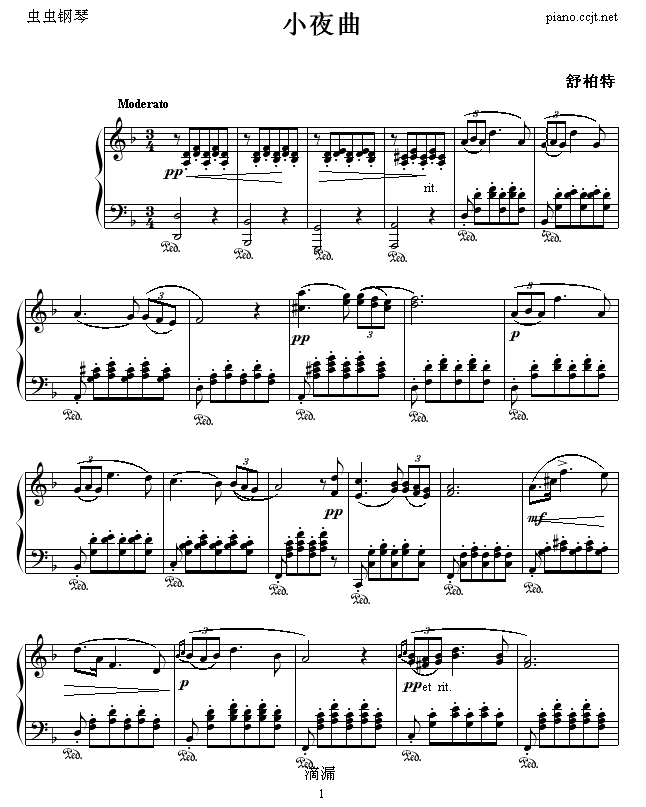 虫虫钢琴
小夜曲
piano.ccjt.net
舒柏特
Moderato
3
4
3
4
3
3
pp
rit.
Ped. Ped. Ped. Ped. Ped. Ped.
3
3
3
pp
3
p
Ped. Ped. Ped. Ped. Ped.
3
3
3
pp
mf
Ped. Ped. Ped. Ped. Ped. Ped.
3
3
p
pp et rit.
Ped. Ped. Ped. Ped. Ped.
滴漏
1